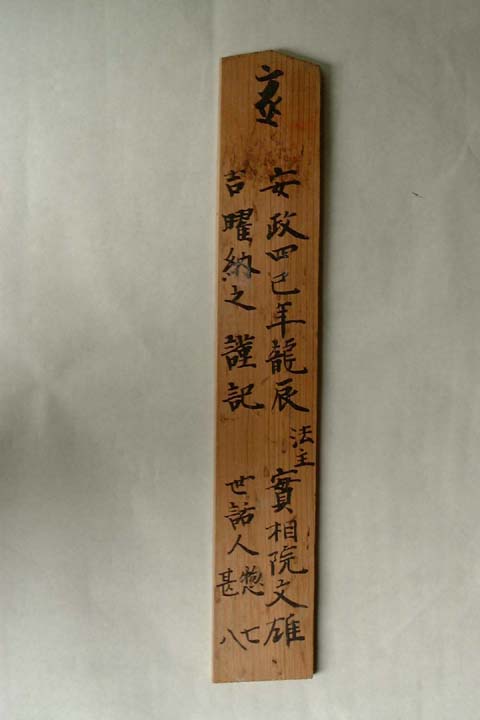 安政四巳年龍辰
法主
實相院文雄
吉曜納之 謹記
世話人
惣七
甚八